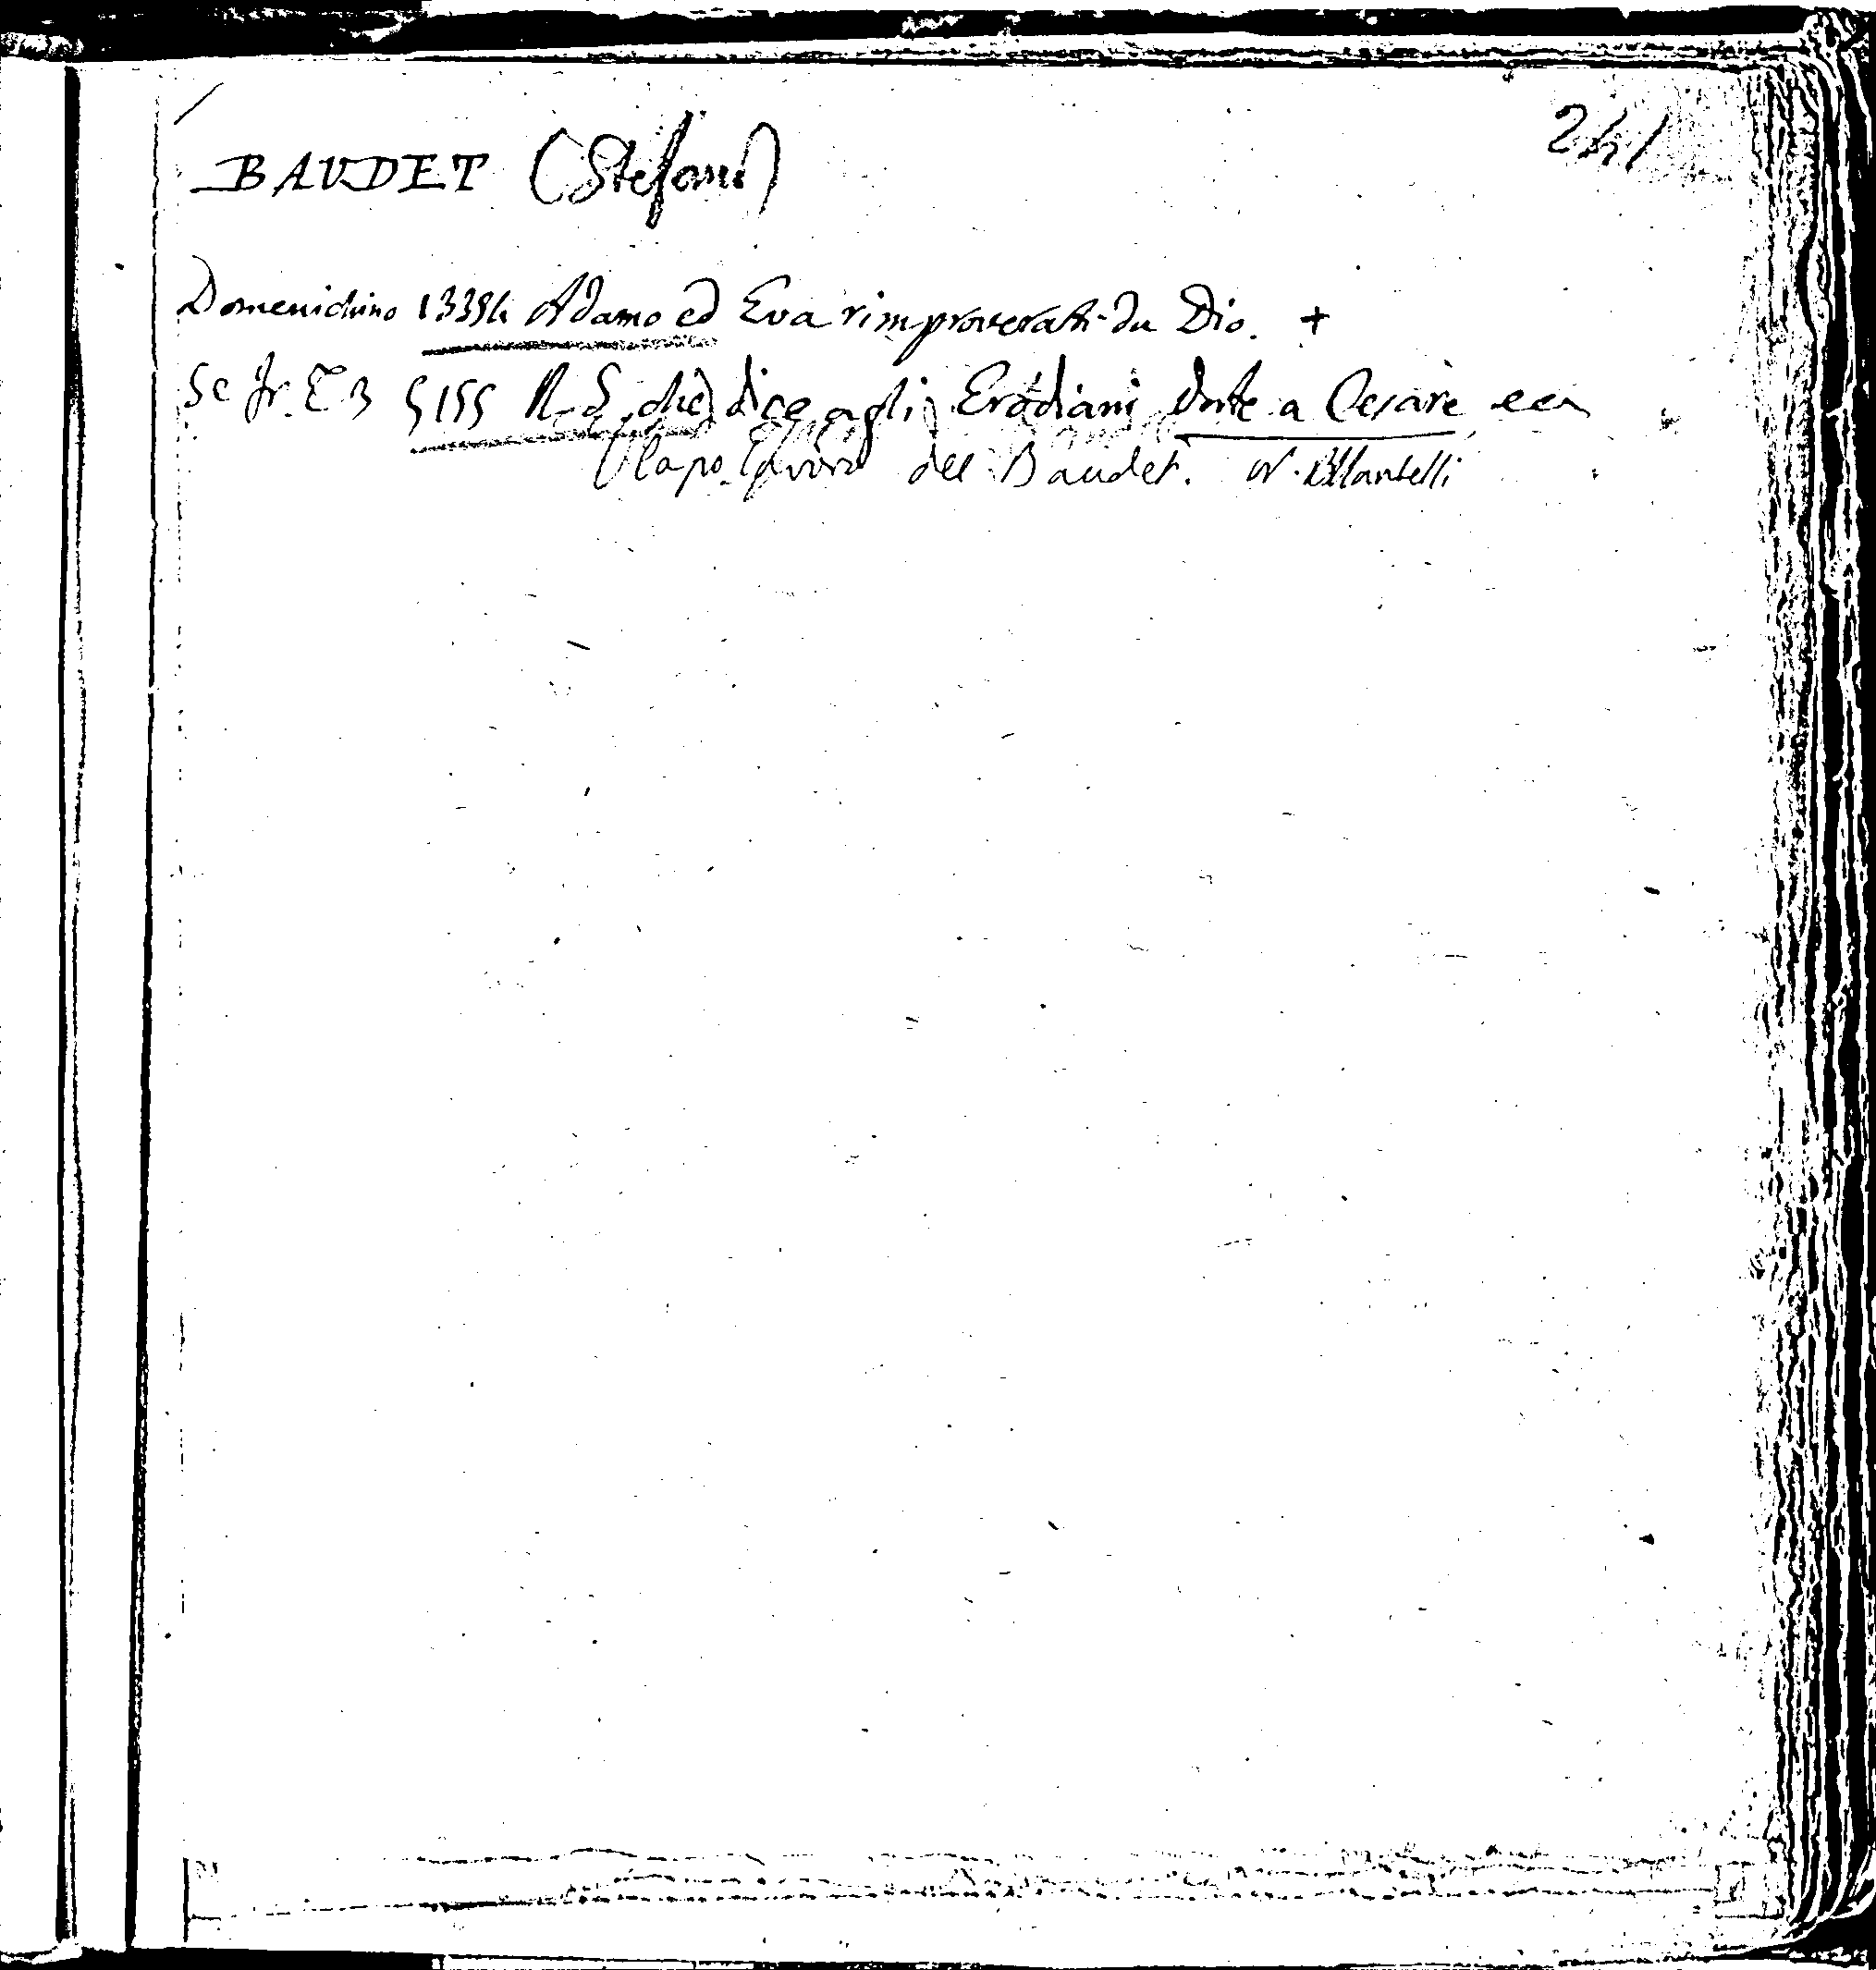 241
BAUDET (Stefano)
Domenichino 13394 Adamo ed Eva rimproverati da Dio. +
5155 N. S. che dice agli Erodiani Date a Cesare ecc
Capo lavoro del Baudet. Mantelli